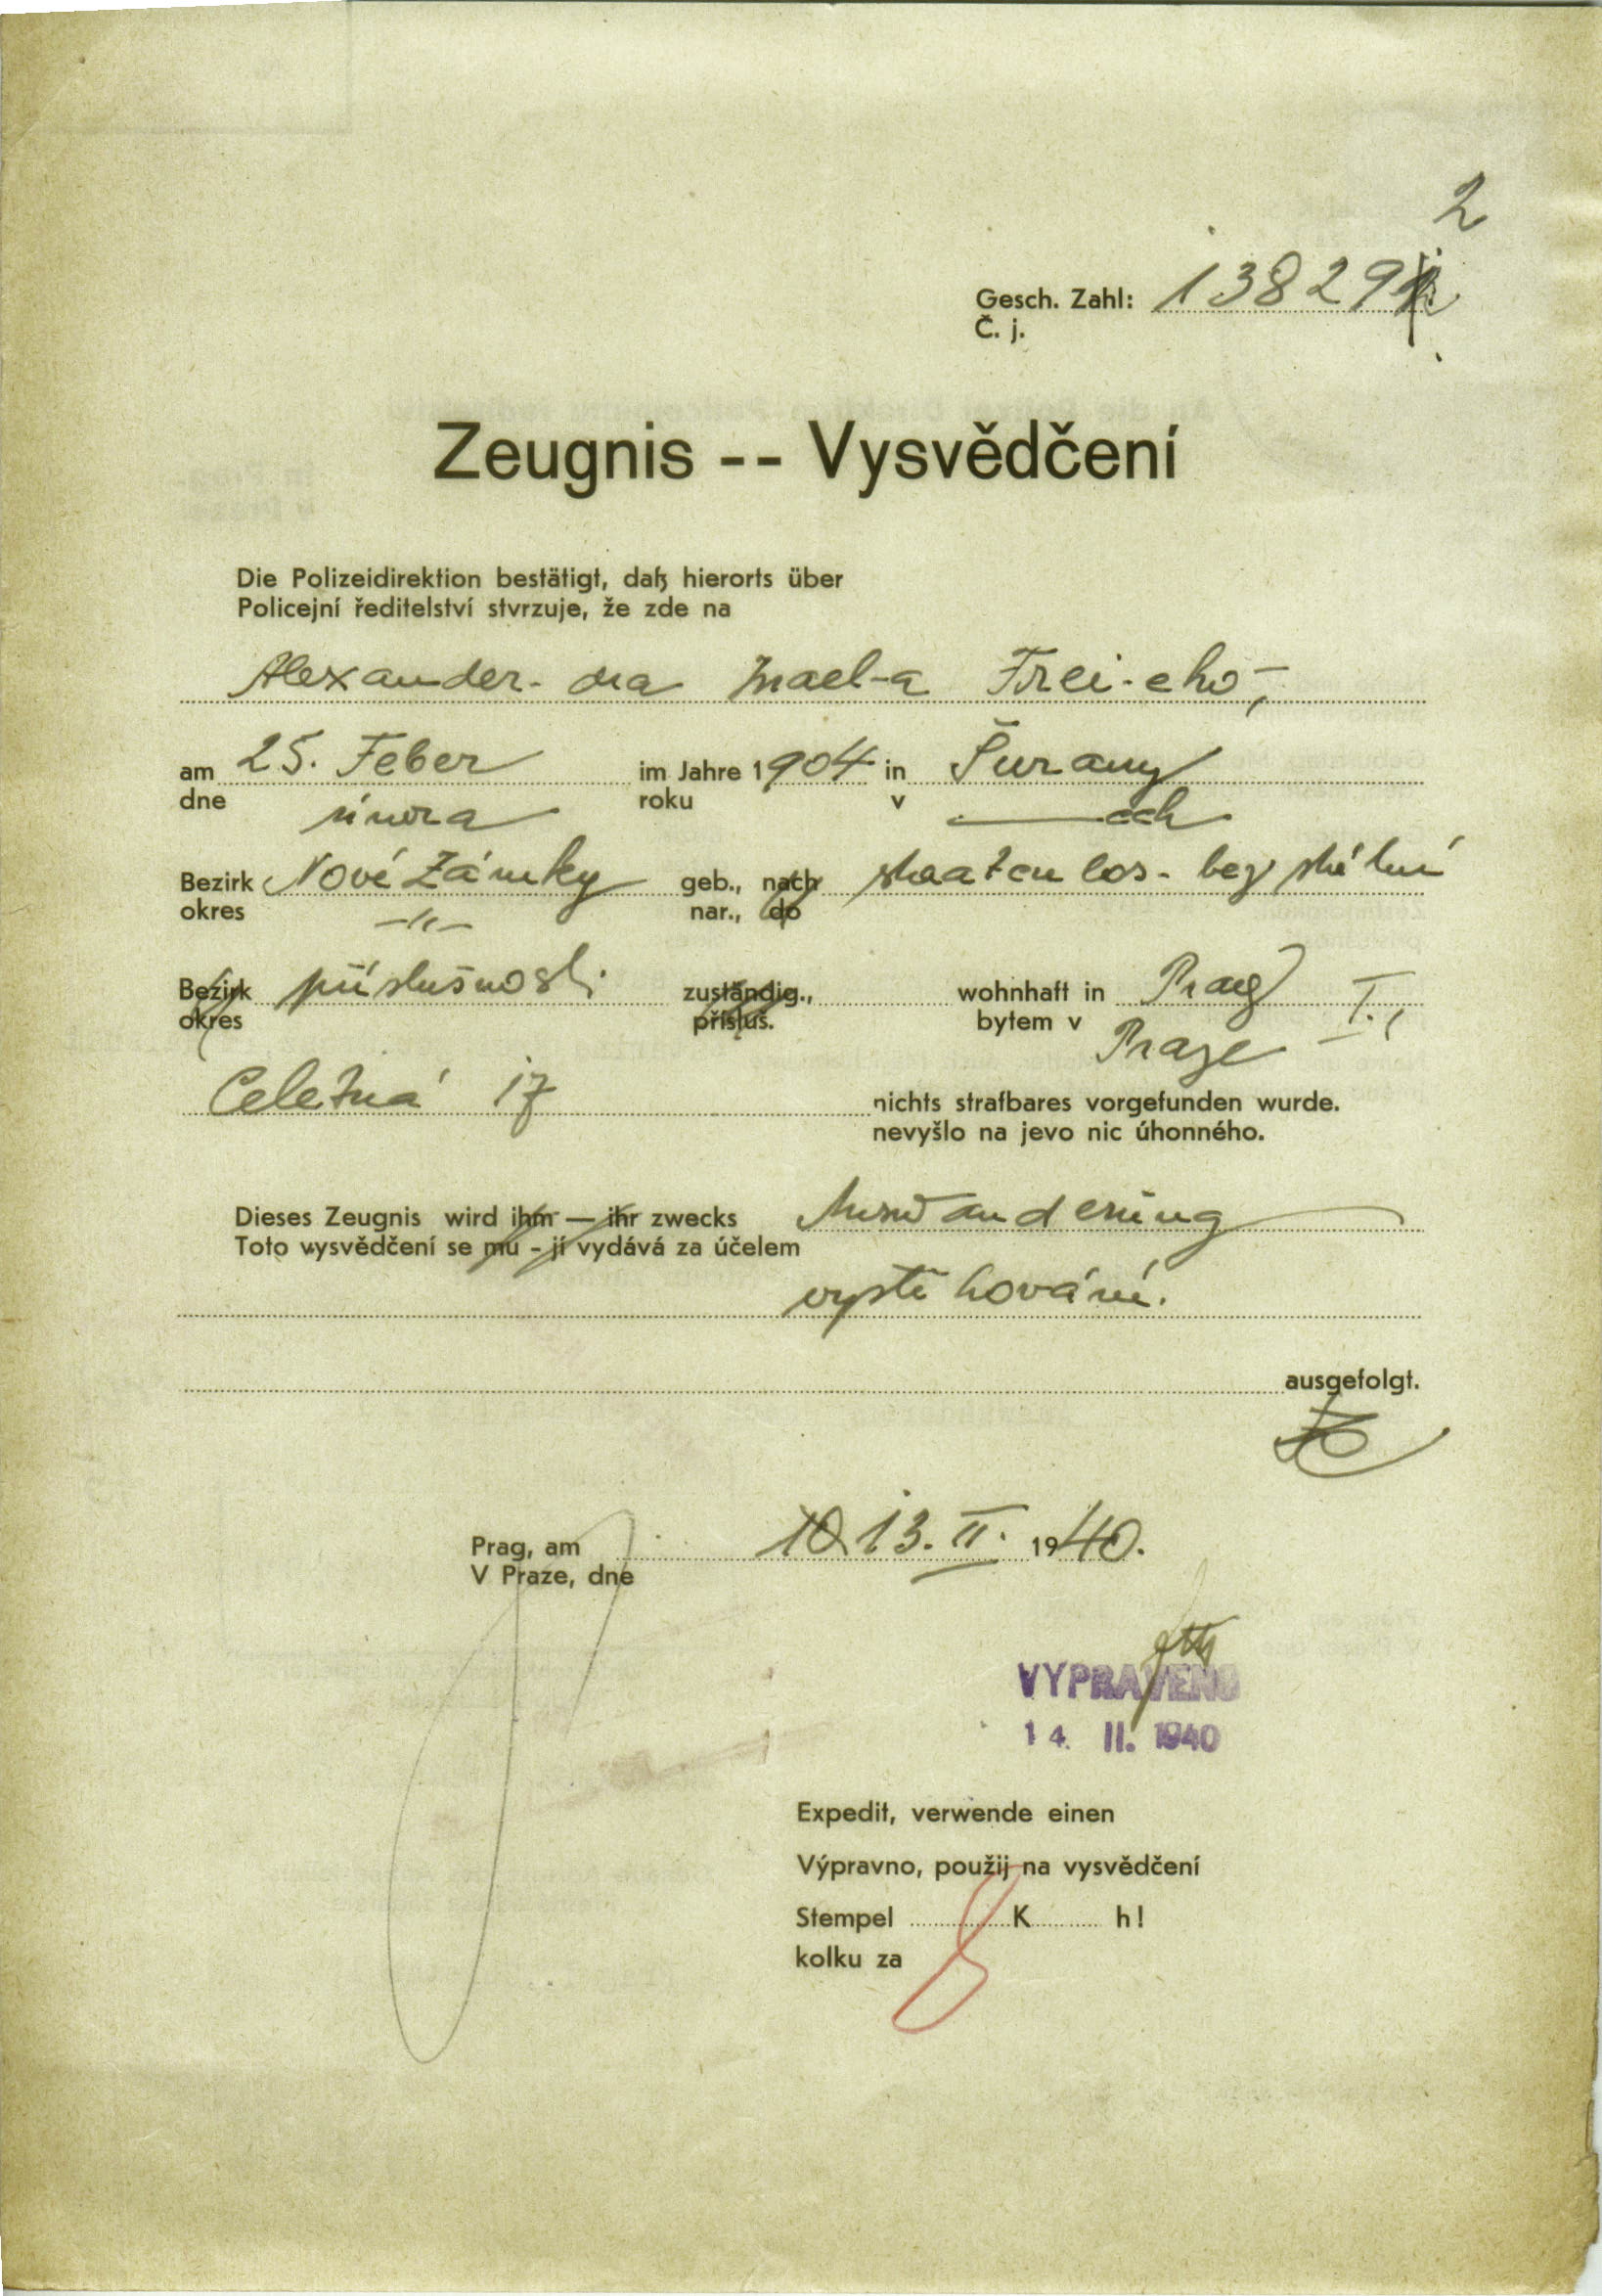 2
Gesch. Zahl: 13829
Č. j.
Zeugnis -- Vysvědčení
Die Polizeidirektion bestätigt, daß hierorts über
Policejní ředitelství stvrzuje, že zde na
Alexander-dra Israel-a Frei-eho,
am 25. Feber im Jahre 1904 in Šurany
dne února roku v ——ách
Bezirk Nové Zámky geb., nach staatenlos - bez státní
okres —"— nar., do
Bezirk příslušnosti zuständig., wohnhaft in Prag I.,
okres přísluš. bytem v Praze
Celetná 17 nichts strafbares vorgefunden wurde.
nevyšlo na jevo nic úhonného.
Dieses Zeugnis wird ihm — ihr zwecks Auswanderung
Toto vysvědčení se mu - jí vydává za účelem
vystěhování.
ausgefolgt.
Prag, am 10. 13. II. 1940.
V Praze, dne
VYPRAVENO
14. II. 1940
Expedit, verwende einen
Výpravno, použij na vysvědčení
Stempel K h!
kolku za